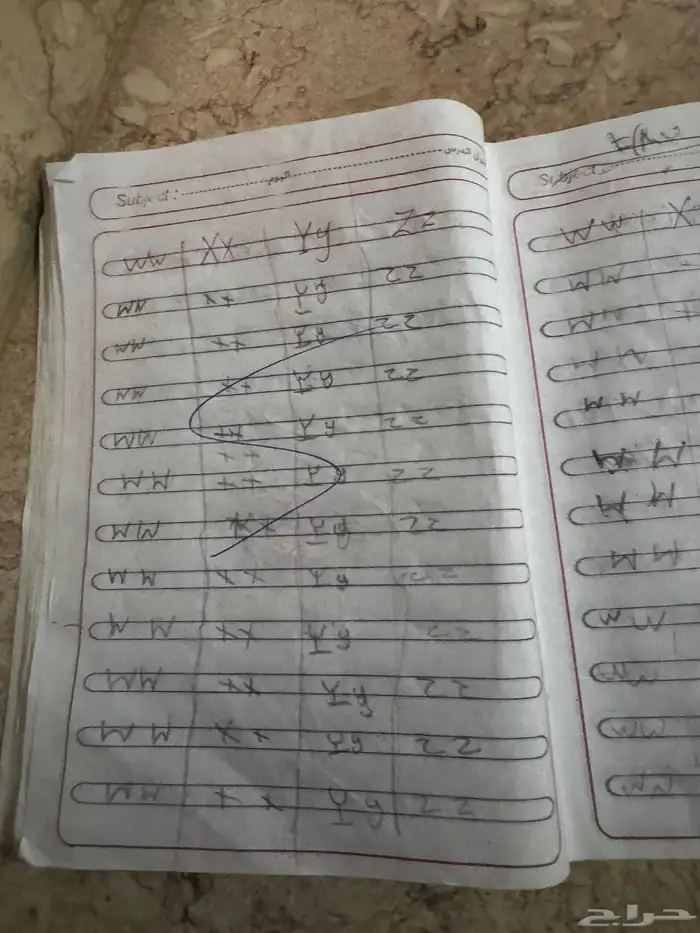 Subject: اليوم
Ww Xx Yy Zz
ww xx Yy zz
ww xx Yy zz
ww xx Yy zz
ww xx Yy zz
xx
ww xx Yy zz
ww xx Yy zz
ww xx Yy zz
ww xx Yy zz
ww xx Yy zz
ww xx Yy zz
ww xx Yy zz
Subject:
Ww X
ww
ww
ww
ww
ww
ww
ww
ww
ww
ww
ww
حراج